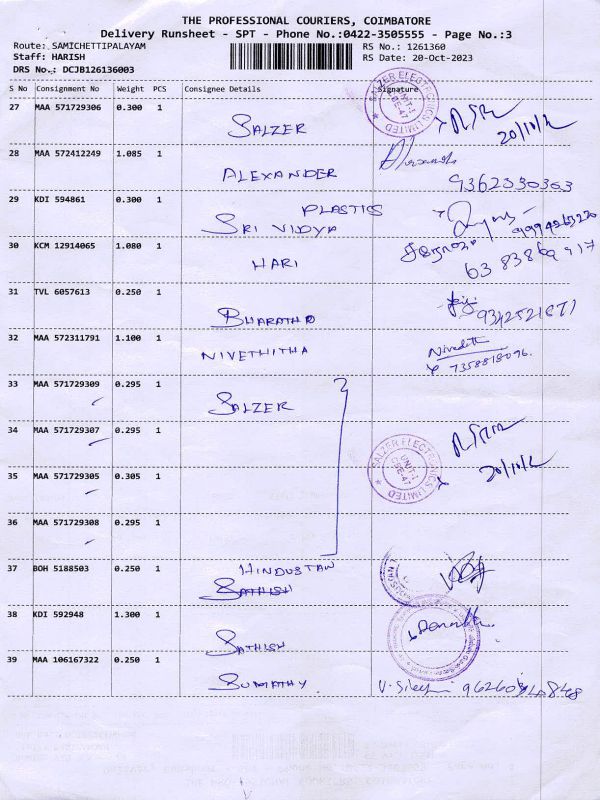 THE PROFESSIONAL COURIERS, COIMBATORE
Delivery Runsheet - SPT - Phone No.:0422-3505555 - Page No.:3
Route: SAMICHETTIPALAYAM RS No.: 1261360
Staff: HARISH RS Date: 20-Oct-2023
DRS No.: DCJB126136003
S No Consignment No Weight PCS Consignee Details Signature
27 MAA 571729306 0.300 1
SALZER 20/10/2
SALZER ELECTRONICS LIMITED UNIT-1 CBE-47
28 MAA 572412249 1.085 1
ALEXANDER
29 KDI 594861 0.300 1
PLASTICS
SRI VIDYA
30 KCM 12914065 1.080 1
HARI
31 TVL 6057613 0.250 1
BHARATH
32 MAA 572311791 1.100 1
NIVETHITHA Nivedith
7358818096.
33 MAA 571729309 0.295 1
SALZER
34 MAA 571729307 0.295 1
SALZER ELECTRONICS LIMITED UNIT-1 CBE-47
20/10/2
35 MAA 571729305 0.305 1
36 MAA 571729308 0.295 1
37 BOH 5188503 0.250 1
HINDUSTAN
SATHISH
38 KDI 592948 1.300 1
SATHISH
39 MAA 106167322 0.250 1
SUMATHY